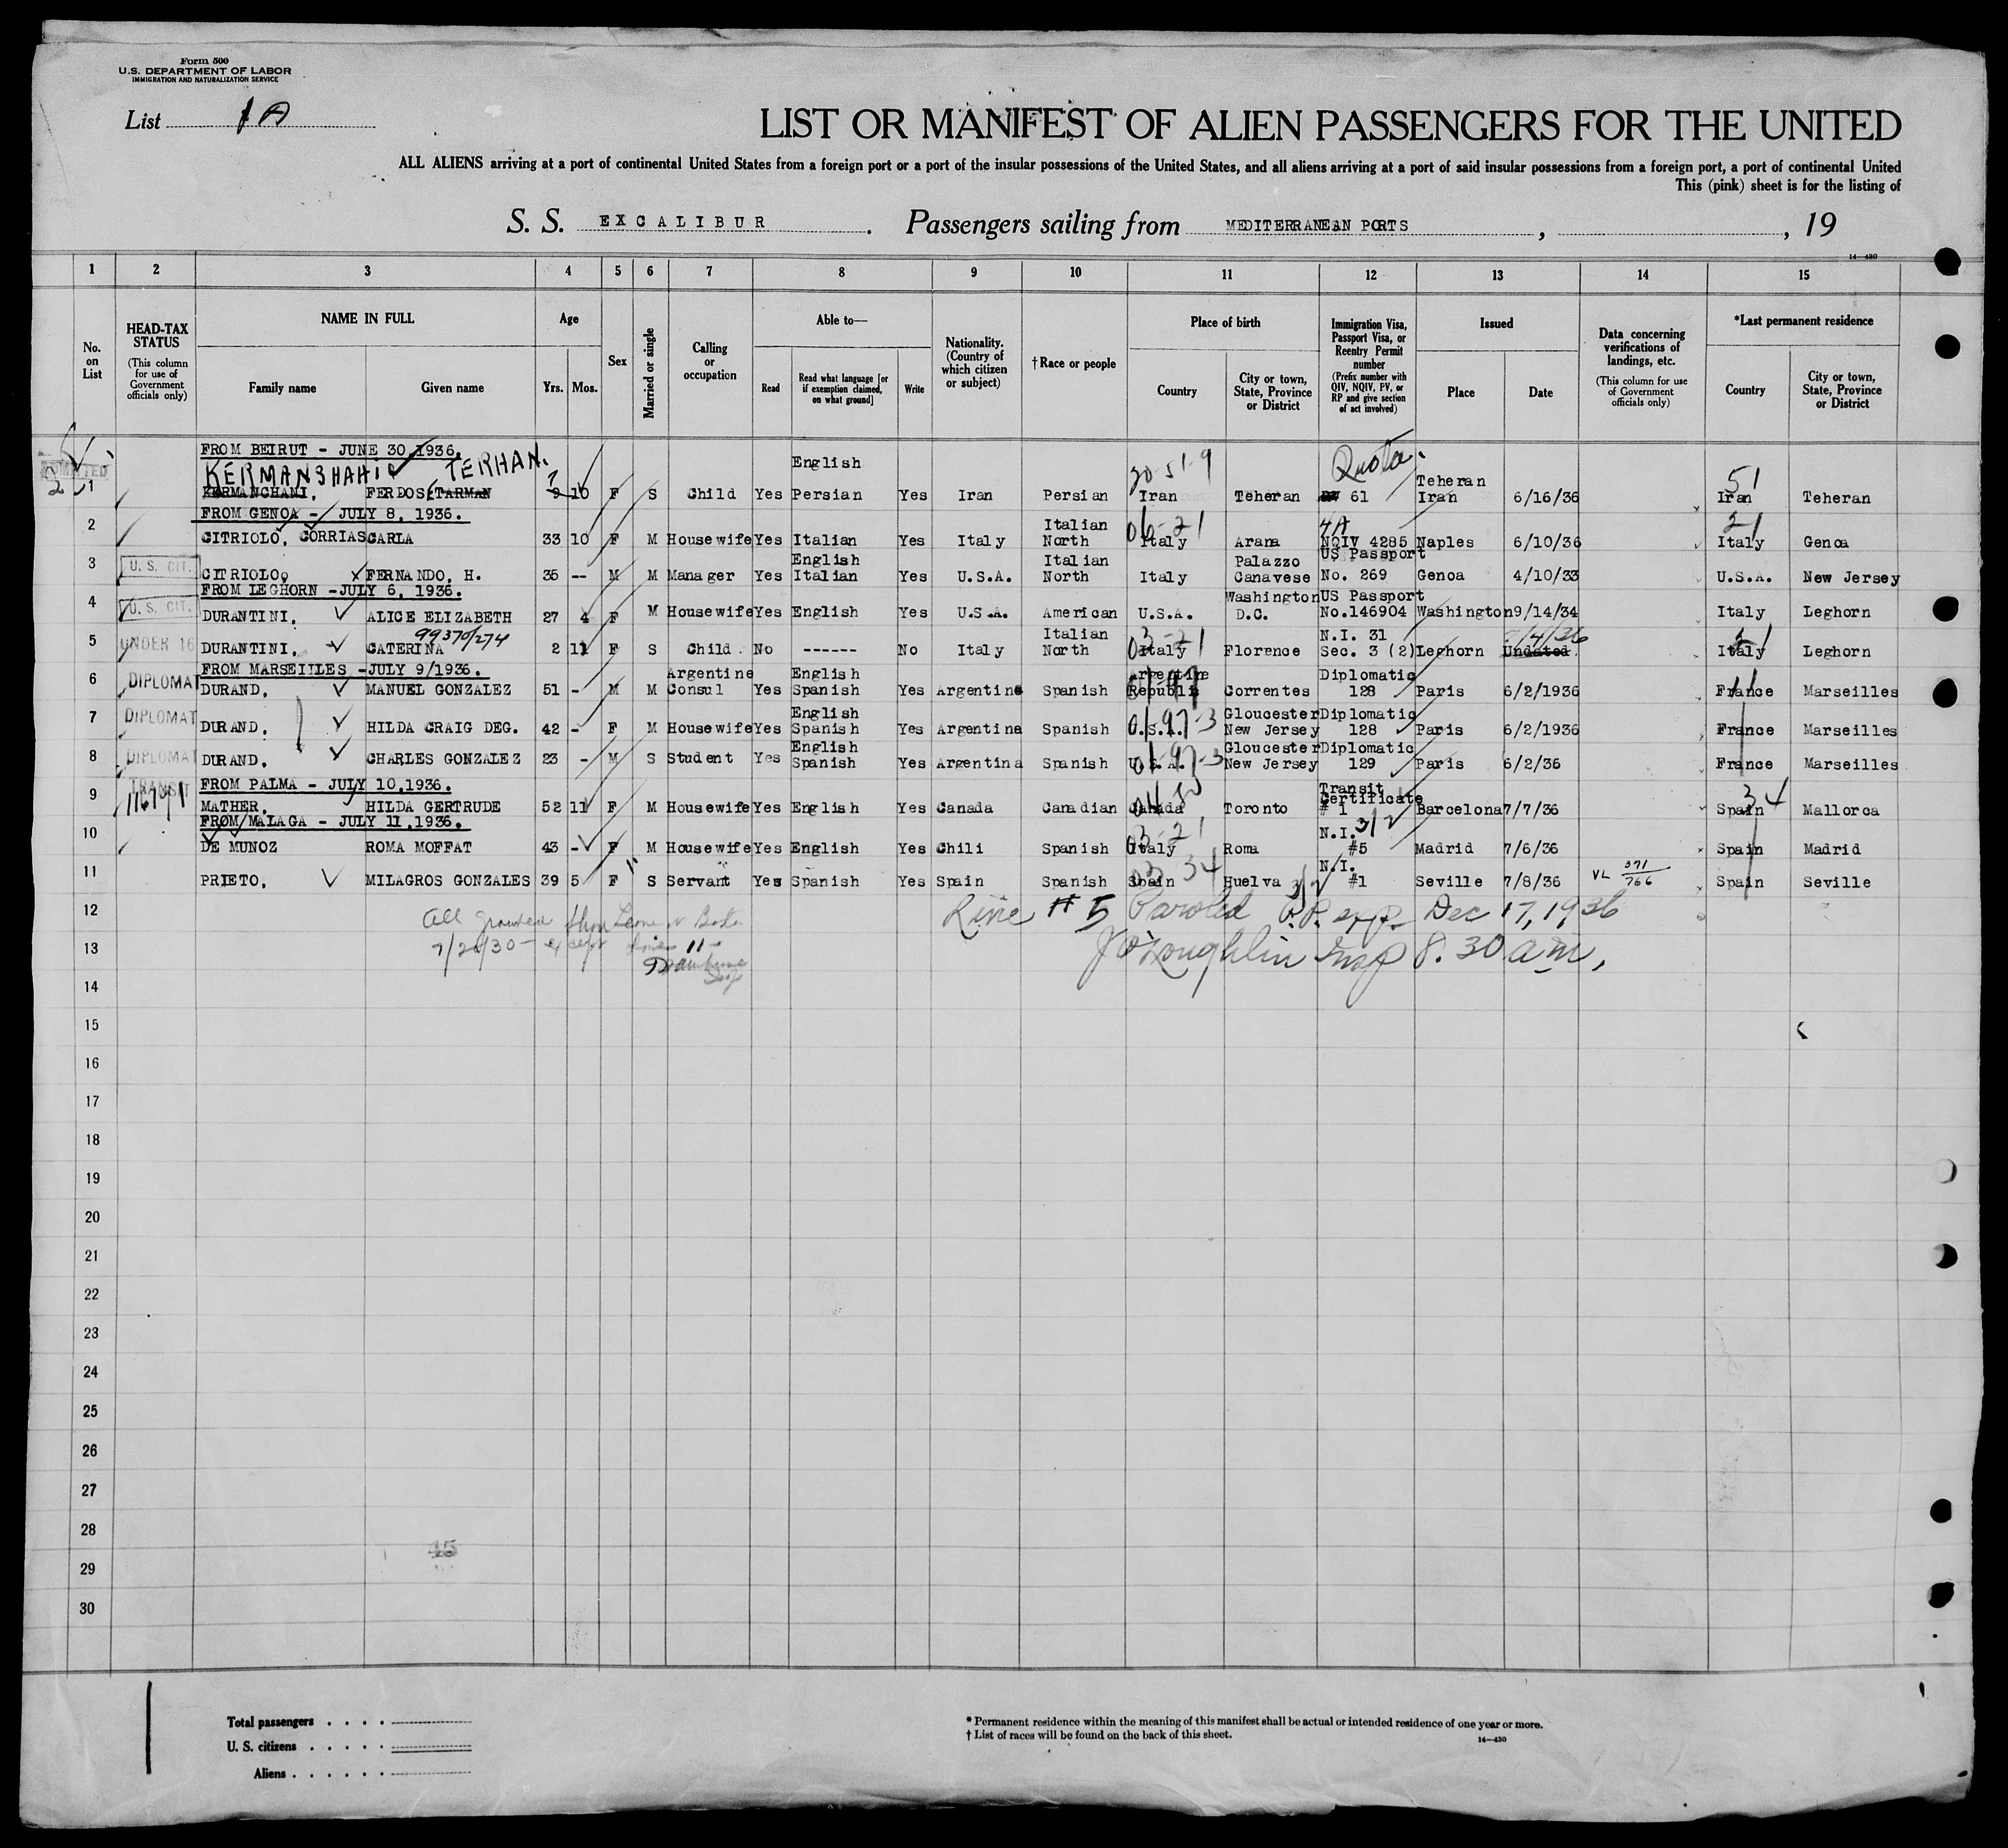 Form 500
U.S. DEPARTMENT OF LABOR
IMMIGRATION AND NATURALIZATION SERVICE
List 1A
LIST OR MANIFEST OF ALIEN PASSENGERS FOR THE UNITED
ALL ALIENS arriving at a port of continental United States from a foreign port or a port of the insular possessions of the United States, and all aliens arriving at a port of said insular possessions from a foreign port, a port of continental United
This (pink) sheet is for the listing of
S. S. EXCALIBUR. Passengers sailing from MEDITERRANEAN PORTS, , 19
14—430
1 2 3 4 5 6 7 8 9 10 11 12 13 14 15
No. on List
HEAD-TAX STATUS (This column for use of Government officials only)
NAME IN FULL Family name Given name
Age Yrs. Mos.
Sex
Married or single
Calling or occupation
Able to— Read Read what language [or if exemption claimed, on what ground] Write
Nationality. (Country of which citizen or subject)
† Race or people
Place of birth Country City or town, State, Province or District
Immigration Visa, Passport Visa, or Reentry Permit number (Prefix number with QIV, NQIV, PV, or RP and give section of act involved)
Issued Place Date
Data concerning verifications of landings, etc. (This column for use of Government officials only)
*Last permanent residence Country City or town, State, Province or District
FROM BEIRUT - JUNE 30,1936.
KERMANSHAHI TERHAN. English 20-51-9 Quota. Teheran 51
1 KERMANCHANI, FERDOS, TARMAN 9 10 F S Child Yes Persian Yes Iran Persian Iran Teheran 61 Iran 6/16/36 Iran Teheran
FROM GENOA - JULY 8, 1936.
Italian 06-21 4A 21
2 CITRIOLO, CORRIAS CARLA 33 10 F M Housewife Yes Italian Yes Italy North Italy Arama NQIV 4285 Naples 6/10/36 Italy Genoa
U. S. CIT. English Italian Palazzo US Passport
3 CITRIOLO, FERNANDO, H. 35 -- M M Manager Yes Italian Yes U.S.A. North Italy Canavese No. 269 Genoa 4/10/33 U.S.A. New Jersey
FROM LEGHORN -JULY 6, 1936.
U. S. CIT. Washington US Passport
4 DURANTINI, ALICE ELIZABETH 27 4 F M Housewife Yes English Yes U.S.A. American U.S.A. D.C. No.146904 Washington 9/14/34 Italy Leghorn
99370/274 Italian 03-21 N.I. 31 21
5 UNDER 16 DURANTINI, CATERINA 2 11 F S Child No ------ No Italy North Italy Florence Sec. 3 (2) Leghorn Undated. Italy Leghorn
FROM MARSEILLES -JULY 9/1936.
Argentine English Argentine Diplomatic
6 DIPLOMAT DURAND, MANUEL GONZALEZ 51 - M M Consul Yes Spanish Yes Argentine Spanish Republic Correntes 128 Paris 6/2/1936 France Marseilles
English Gloucester Diplomatic
7 DIPLOMAT DURAND, HILDA CRAIG DEG. 42 - F M Housewife Yes Spanish Yes Argentina Spanish U.S.A. New Jersey 128 Paris 6/2/1936 France Marseilles
English Gloucester Diplomatic
8 DIPLOMAT DURAND. CHARLES GONZALEZ 23 - M S Student Yes Spanish Yes Argentina Spanish U.S.A. New Jersey 129 Paris 6/2/36 France Marseilles
TRANSIT FROM PALMA - JULY 10,1936. Transit Certificate 34
9 MATHER, HILDA GERTRUDE 52 11 F M Housewife Yes English Yes Canada Canadian Canada Toronto # 1 Barcelona 7/7/36 Spain Mallorca
FROM MALAGA - JULY 11,1936.
03-21 N.I. 3/2
10 DE MUNOZ ROMA MOFFAT 43 - F M Housewife Yes English Yes Chili Spanish Italy Roma #5 Madrid 7/6/36 Spain Madrid
03 34 N.I. 3/2
11 PRIETO, MILAGROS GONZALES 39 5 F S Servant Yes Spanish Yes Spain Spanish Spain Huelva #1 Seville 7/8/36 VL 371/766 Spain Seville
12 Line # 5 Paroled Dec 17, 1936
13 except line 11 J O'Loughlin Insp 8.30 a m,
14
15
16
17
18
19
20
21
22
23
24
25
26
27
28
29
30
Total passengers
U. S. citizens
Aliens
* Permanent residence within the meaning of this manifest shall be actual or intended residence of one year or more.
† List of races will be found on the back of this sheet.
14—430